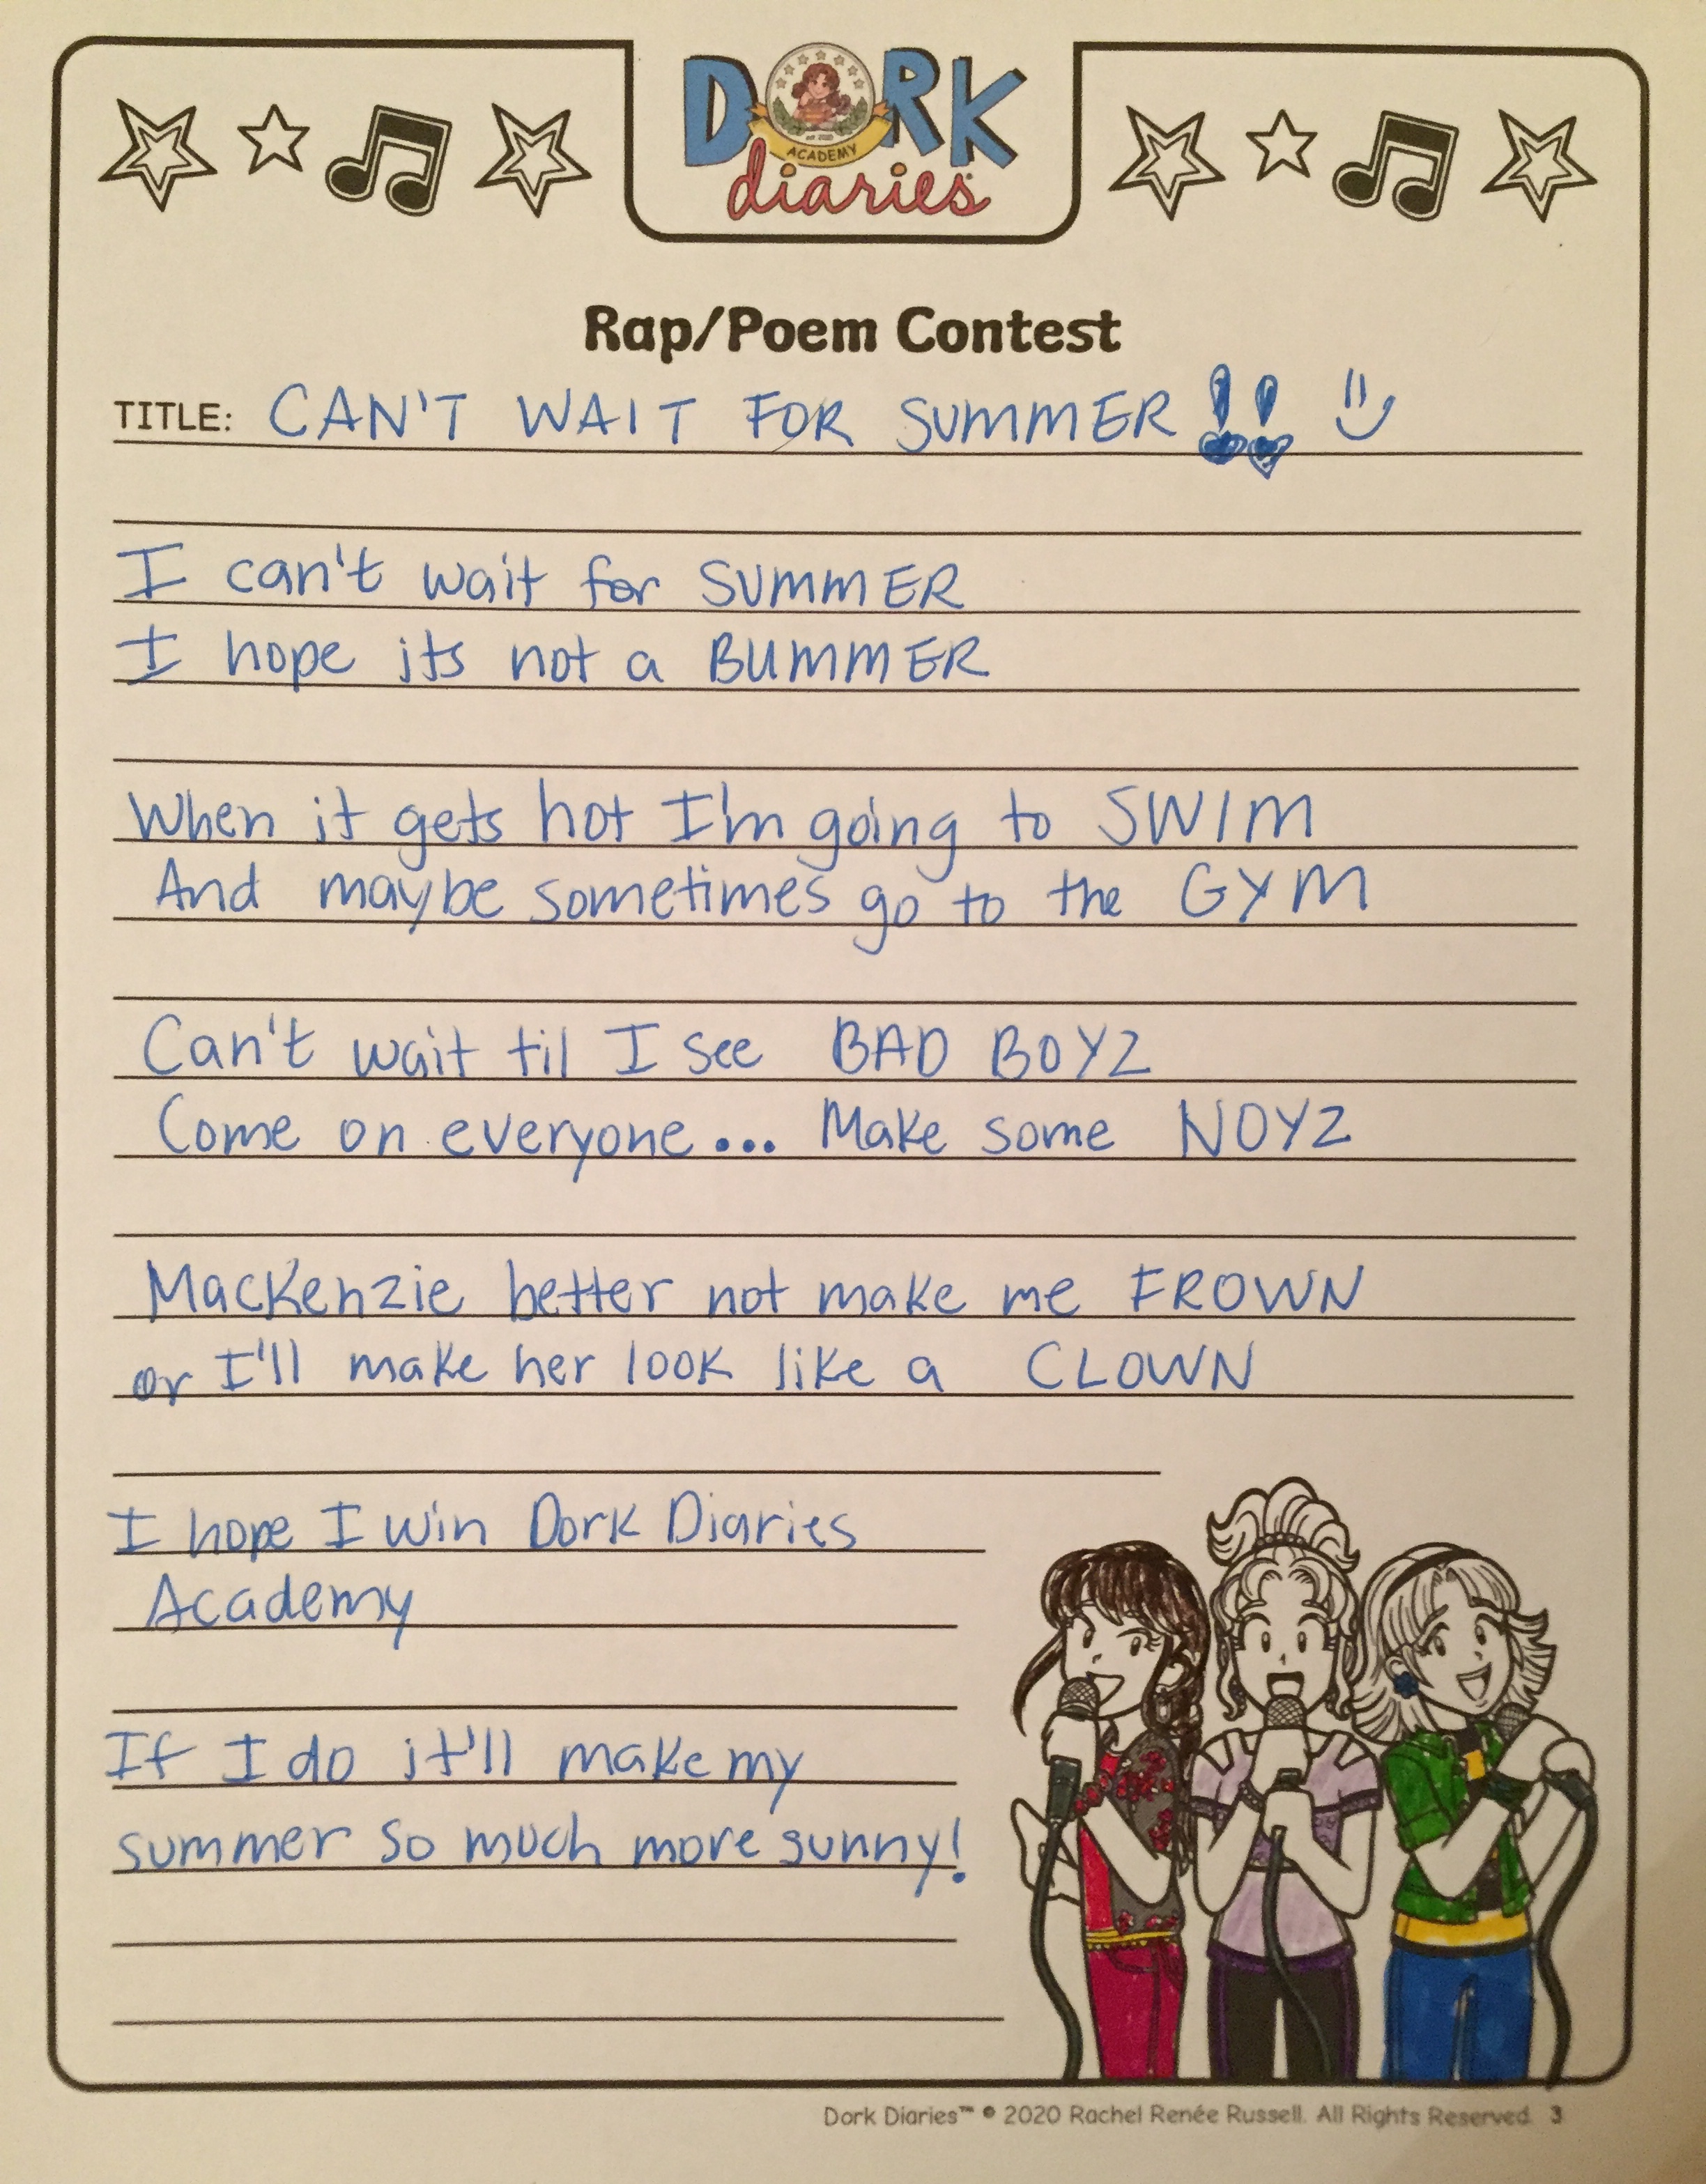 DORK
est. 2020
ACADEMY
diaries
Rap/Poem Contest
TITLE: CAN'T WAIT FOR SUMMER!! :)
I can't wait for SUMMER
I hope its not a BUMMER
When it gets hot I'm going to SWIM
And maybe sometimes go to the GYM
Can't wait til I see BAD BOYZ
Come on everyone... Make some NOYZ
MacKenzie better not make me FROWN
or I'll make her look like a CLOWN
I hope I win Dork Diaries
Academy
If I do it'll make my
summer so much more sunny!
Dork Diaries™ © 2020 Rachel Renée Russell. All Rights Reserved. 3